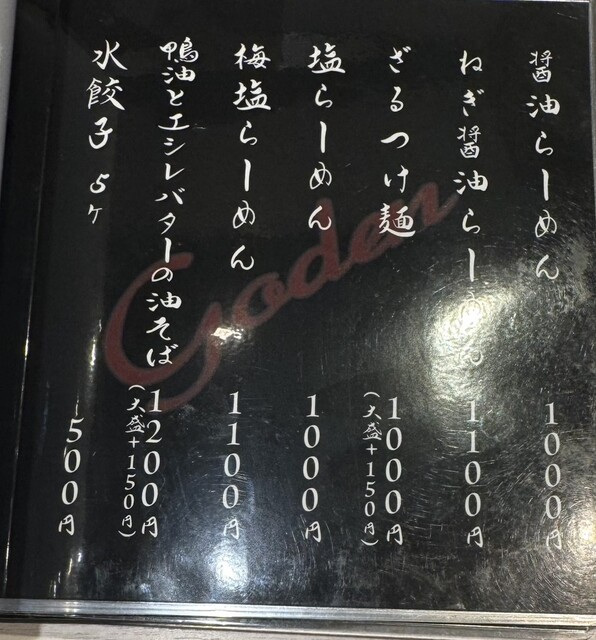 醤油らーめん 1000円
ねぎ醤油らーめん 1100円
ざるつけ麺 1000円
(大盛+150円)
塩らーめん 1000円
梅塩らーめん 1100円
鴨油とエシレバターの油そば 1200円
(大盛+150円)
水餃子 5ケ 500円
Goden